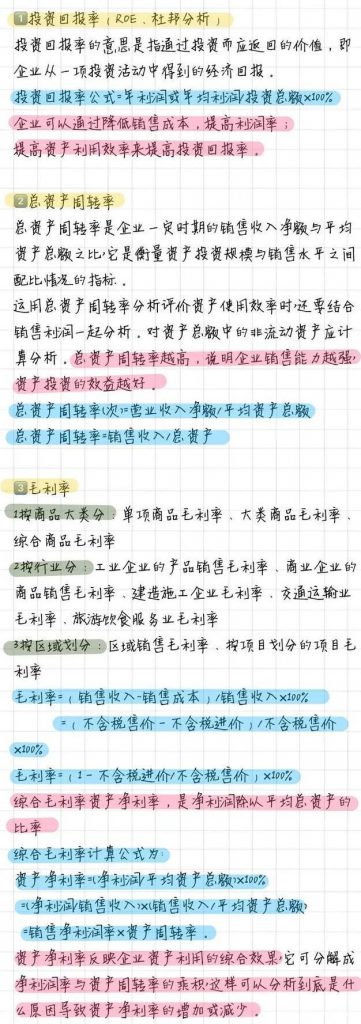 1 投资回报率(ROE、杜邦分析)
投资回报率的意思是指通过投资而应返回的价值,即
企业从一项投资活动中得到的经济回报。
投资回报率公式=年利润或年均利润/投资总额×100%
企业可以通过降低销售成本,提高利润率;
提高资产利用效率来提高投资回报率。
2 总资产周转率
总资产周转率是企业一定时期的销售收入净额与平均
资产总额之比,它是衡量资产投资规模与销售水平之间
配比情况的指标.
运用总资产周转率分析评价资产使用效率时,还要结合
销售利润一起分析。对资产总额中的非流动资产应计
算分析。总资产周转率越高,说明企业销售能力越强,
资产投资的效益越好。
总资产周转率(次)=营业收入净额/平均资产总额
总资产周转率=销售收入/总资产
3 毛利率
1按商品大类分:单项商品毛利率、大类商品毛利率、
综合商品毛利率
2按行业分:工业企业的产品销售毛利率、商业企业的
商品销售毛利率、建造施工企业毛利率、交通运输业
毛利率、旅游饮食服务业毛利率
3按区域划分:区域销售毛利率、按项目划分的项目毛
利率
毛利率=(销售收入-销售成本)/销售收入×100%
=(不含税售价-不含税进价)/不含税售价
×100%
毛利率=(1-不含税进价/不含税售价)×100%
综合毛利率资产净利率,是净利润除以平均总资产的
比率
综合毛利率计算公式为:
资产净利率=(净利润/平均资产总额)×100%
=(净利润/销售收入)×(销售收入/平均资产总额)
=销售净利润率×资产周转率。
资产净利率反映企业资产利用的综合效果,它可分解成
净利润率与资产周转率的乘积,这样可以分析到底是什
么原因导致资产净利率的增加或减少。